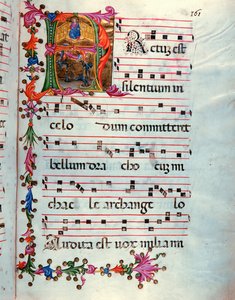 161
Factum est
silentium in
celo dum committeret
bellum dracho cum mi
chaele archangelo
Audita est vox milia mi